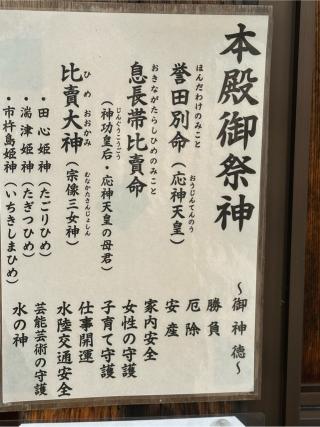 本殿御祭神
ほんだわけのみこと
誉田別命(応神天皇)
おうじんてんのう
おきながたらしひめのみこと
息長帯比賣命
じんぐうこうごう
(神功皇后・応神天皇の母君)
ひめおおかみ
比賣大神(宗像三女神)
むなかたさんじょしん
・田心姫神(たごりひめ)
・湍津姫神(たぎつひめ)
・市杵島姫神(いちきしまひめ)
~御神徳~
勝負
厄除
安産
家内安全
女性の守護
子育て守護
仕事開運
水陸交通安全
芸能芸術の守護
水の神